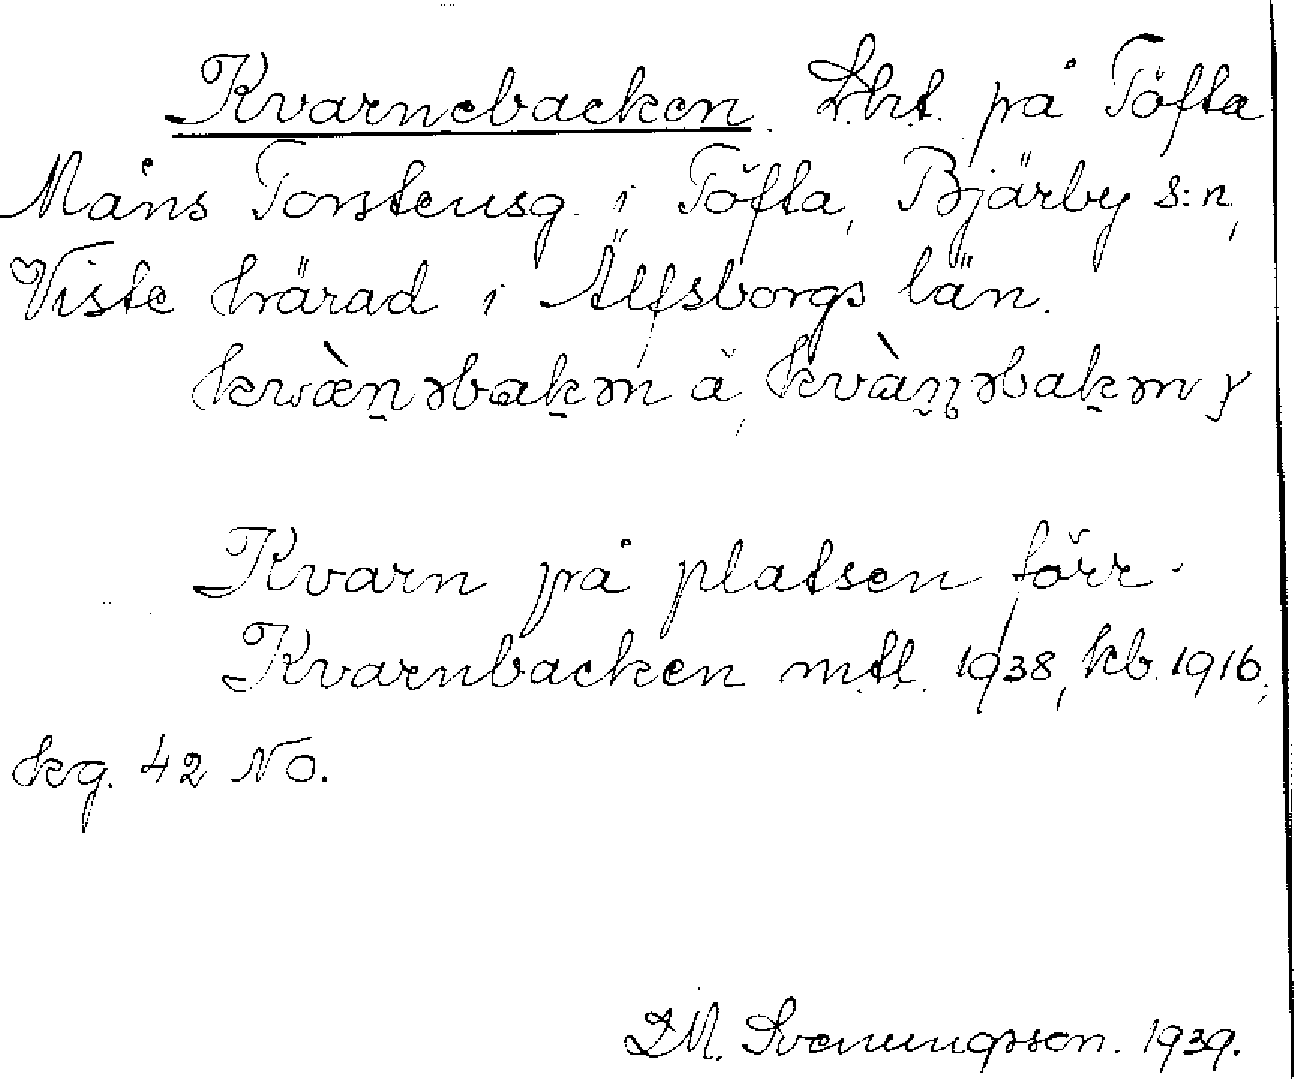 Kvarnebacken. Lht. på Töfta
Måns Torstensg. i Töfta, Bjärby s:n,
Viste härad i Älfsborgs län.
kvæ̀n̠əbak̠ən å, kvàn̠əbak̠ən y
Kvarn på platsen förr.
Kvarnbacken mtl. 1938, kb. 1916,
kg. 42 NO.
D.M. Svenungsson. 1939.